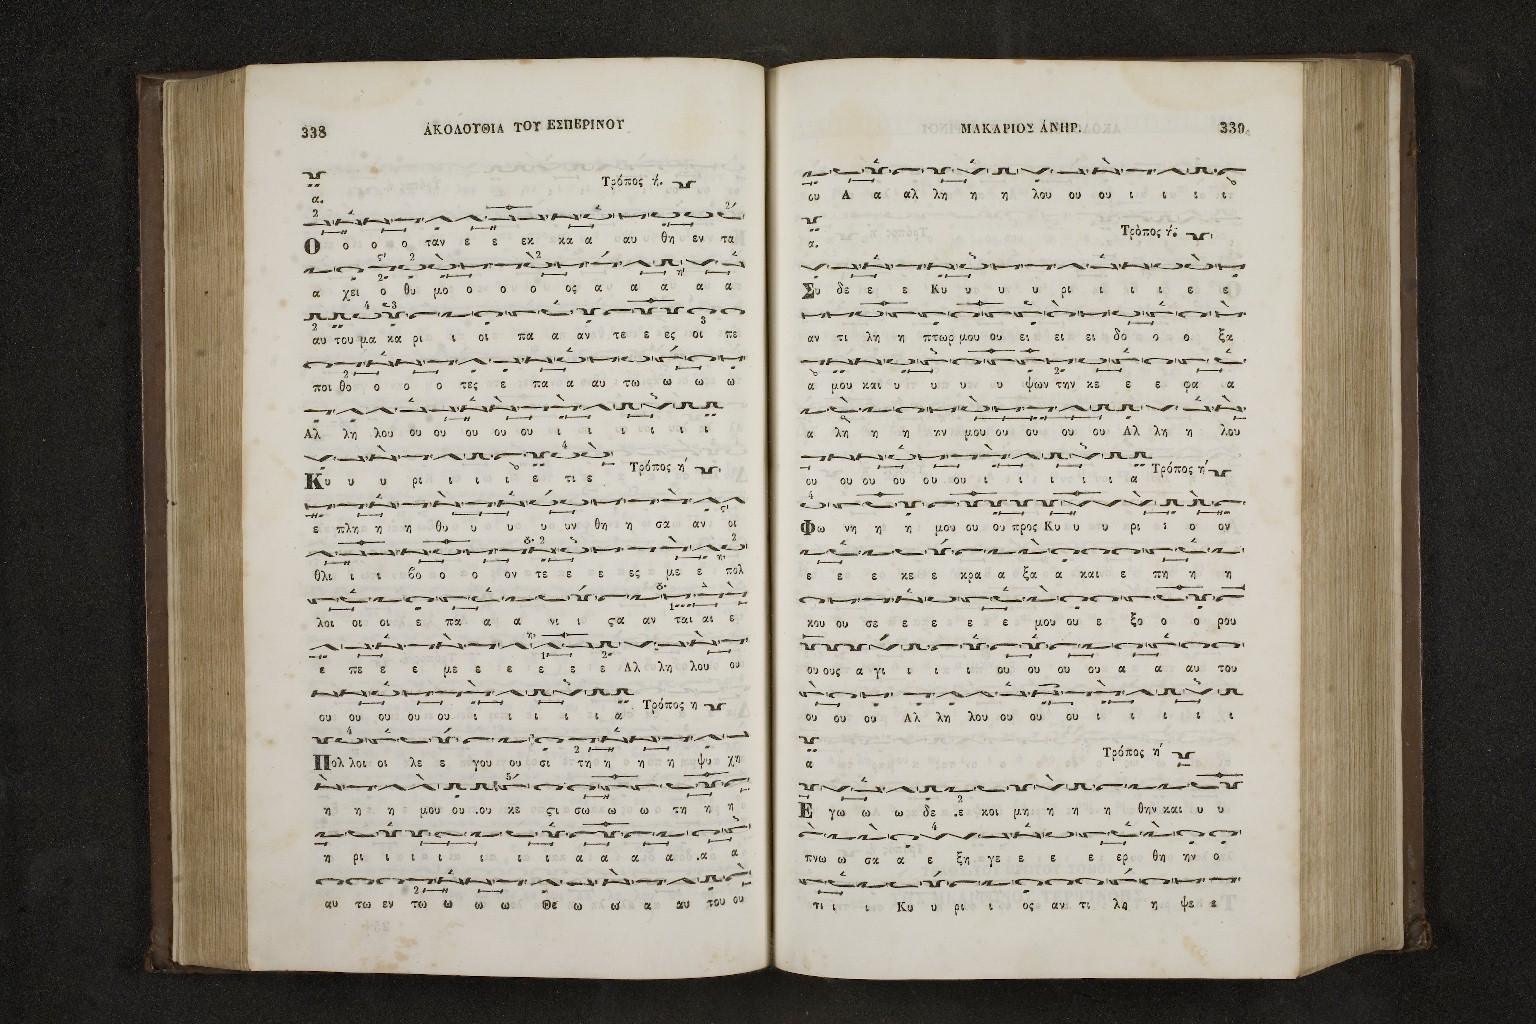 338 ΑΚΟΛΟΥΘΙΑ ΤΟΥ ΕΣΠΕΡΙΝΟΥ
Τρόπος ή.
α.
Ο ο ο ο ταν ε ε εκ κα α αυ θη εν τα
α χει ο θυ μο ο ο ο ο ος α α α α α
αυ του μα κα ρι ι οι πα α αν τε ε ες οι πε
ποι θο ο ο ο τες ε πα α αυ τω ω ω ω
Αλ λη λου ου ου ου ου ου ι ι ι ι ι ι
Κυ υ υ ρι ι ι ι ε τι ε Τρόπος ή
ε πλη η η θυ υ υ υ υν θη η σα αν οι
θλι ι ι βο ο ο ον τε ε ε ε ες με ε πολ
λοι οι οι ε πα α α νι ι ςα αν ται αι ε
ε πε ε ε με ε ε ε ε ε Αλ λη λου ου
ου ου ου ου ου ι ι ι ι ι α Τρόπος η
Πολ λοι οι λε ε γου ου σι τη η η η ψυ χη
η η η μου ου ου κε ςι σω ω ω τη η η
η ρι ι ι ι ι ι ι α α α α α α
αυ τω εν τω ω ω ω Θε ω ω α αυ του ου
ΜΑΚΑΡΙΟΣ ΑΝΗΡ. 339
ου Α α αλ λη η η λου ου ου ι ι ι ι
Τρόπος ή.
α.
Συ δε ε ε Κυ υ υ υ ρι ι ι ι ε ε
αν τι λη η πτωρ μου ου ει ει ει δο ο ο ξα
α μου και υ υ υ υ υ ψων την κε ε ε φα α
α λη η η ην μου ου ου ου ου Αλ λη η λου
ου ου ου ου ου ου ι ι ι ι ι α Τρόπος ή
Φω νη η η μου ου ου προς Κυ υ υ ρι ι ο ον
ε ε ε κε ε κρα α ξα α και ε πη η η
κου ου σε ε ε ε ε μου ου ε ξο ο ο ρου
ου ους α γι ι ι ι ου ου ου ου α α αυ του
ου ου ου Αλ λη λου ου ου ου ι ι ι ι ι
α Τρόπος ή
Ε γω ω ω δε ε κοι μη η η η θην και υ υ
πνω ω σα α ε ξη γε ε ε ε ερ θη ην ο
τι ι ι Κυ υ ρι ι ος αν τι λη η ψε ε